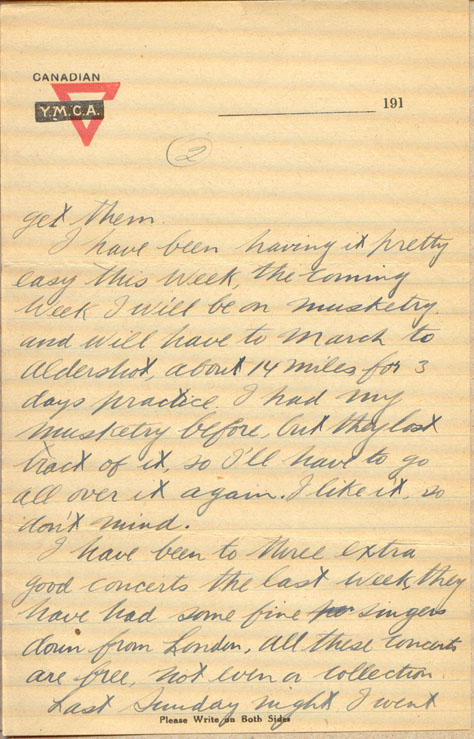 CANADIAN
Y.M.C.A.
191
2
get them.
I have been having it pretty
easy this week, the coming
week I will be on musketry.
and will have to march to
Aldershot, about 14 miles for 3
days practice I had my
musketry before, but they lost
track of it, so I'll have to go
all over it again. I like it, so
don't mind.
I have been to three extra
good concerts the last week, they
have had some fine singers
down from London, all these concerts
are free, not even a collection.
Last Sunday night I went
Please Write on Both Sides